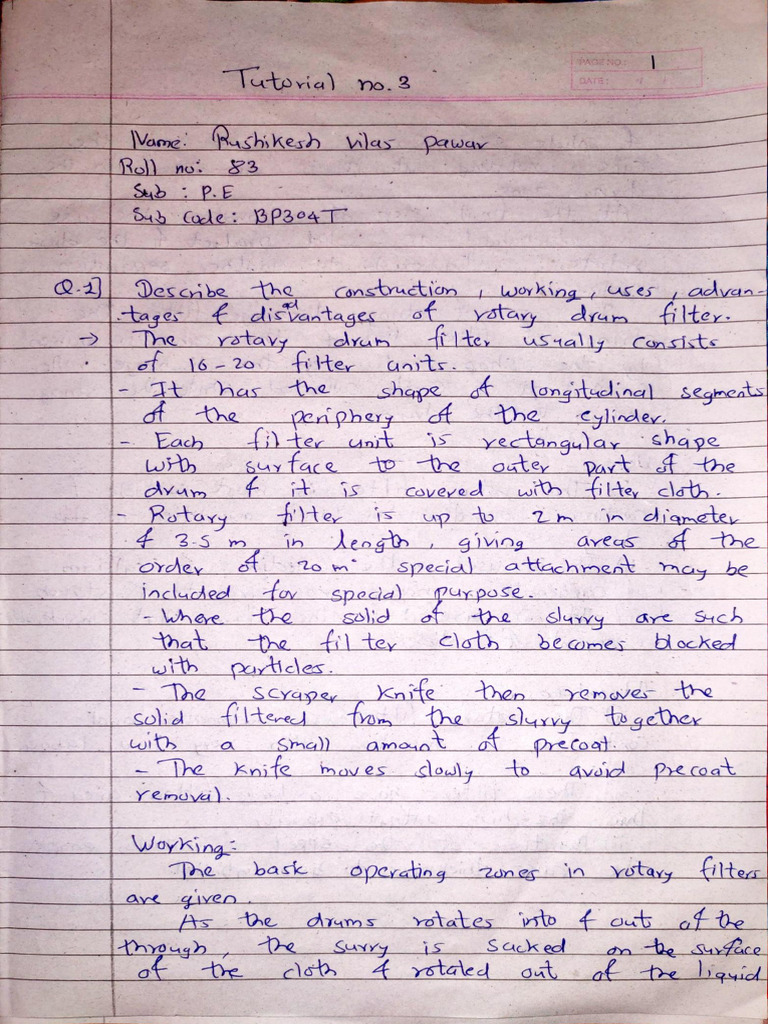 PAGE NO.: 1
DATE: / /
Tutorial no. 3
Name: Rushikesh Vilas Pawar
Roll no: 83
Sub : P.E
Sub Code: BP304T
Q.1] Describe the construction, working, uses, advan-
-tages & disadvantages of rotary drum filter.
→ The rotary drum filter usually consists
of 16-20 filter units.
- It has the shape of longitudinal segments
of the periphery of the cylinder.
- Each filter unit is rectangular shape
with surface to the outer part of the
drum & it is covered with filter cloth.
- Rotary filter is up to 2m in diameter
& 3.5 m in length, giving areas of the
order of 20 m² special attachment may be
included for special purpose.
- Where the solid of the slurry are such
that the filter cloth becomes blocked
with particles.
- The scraper knife then removes the
solid filtered from the slurry together
with a small amount of precoat.
- The knife moves slowly to avoid precoat
removal.
Working:
The basic operating zones in rotary filters
are given.
As the drums rotates into & out of the
through, the surry is sucked on the surface
of the cloth & rotated out of the liquid